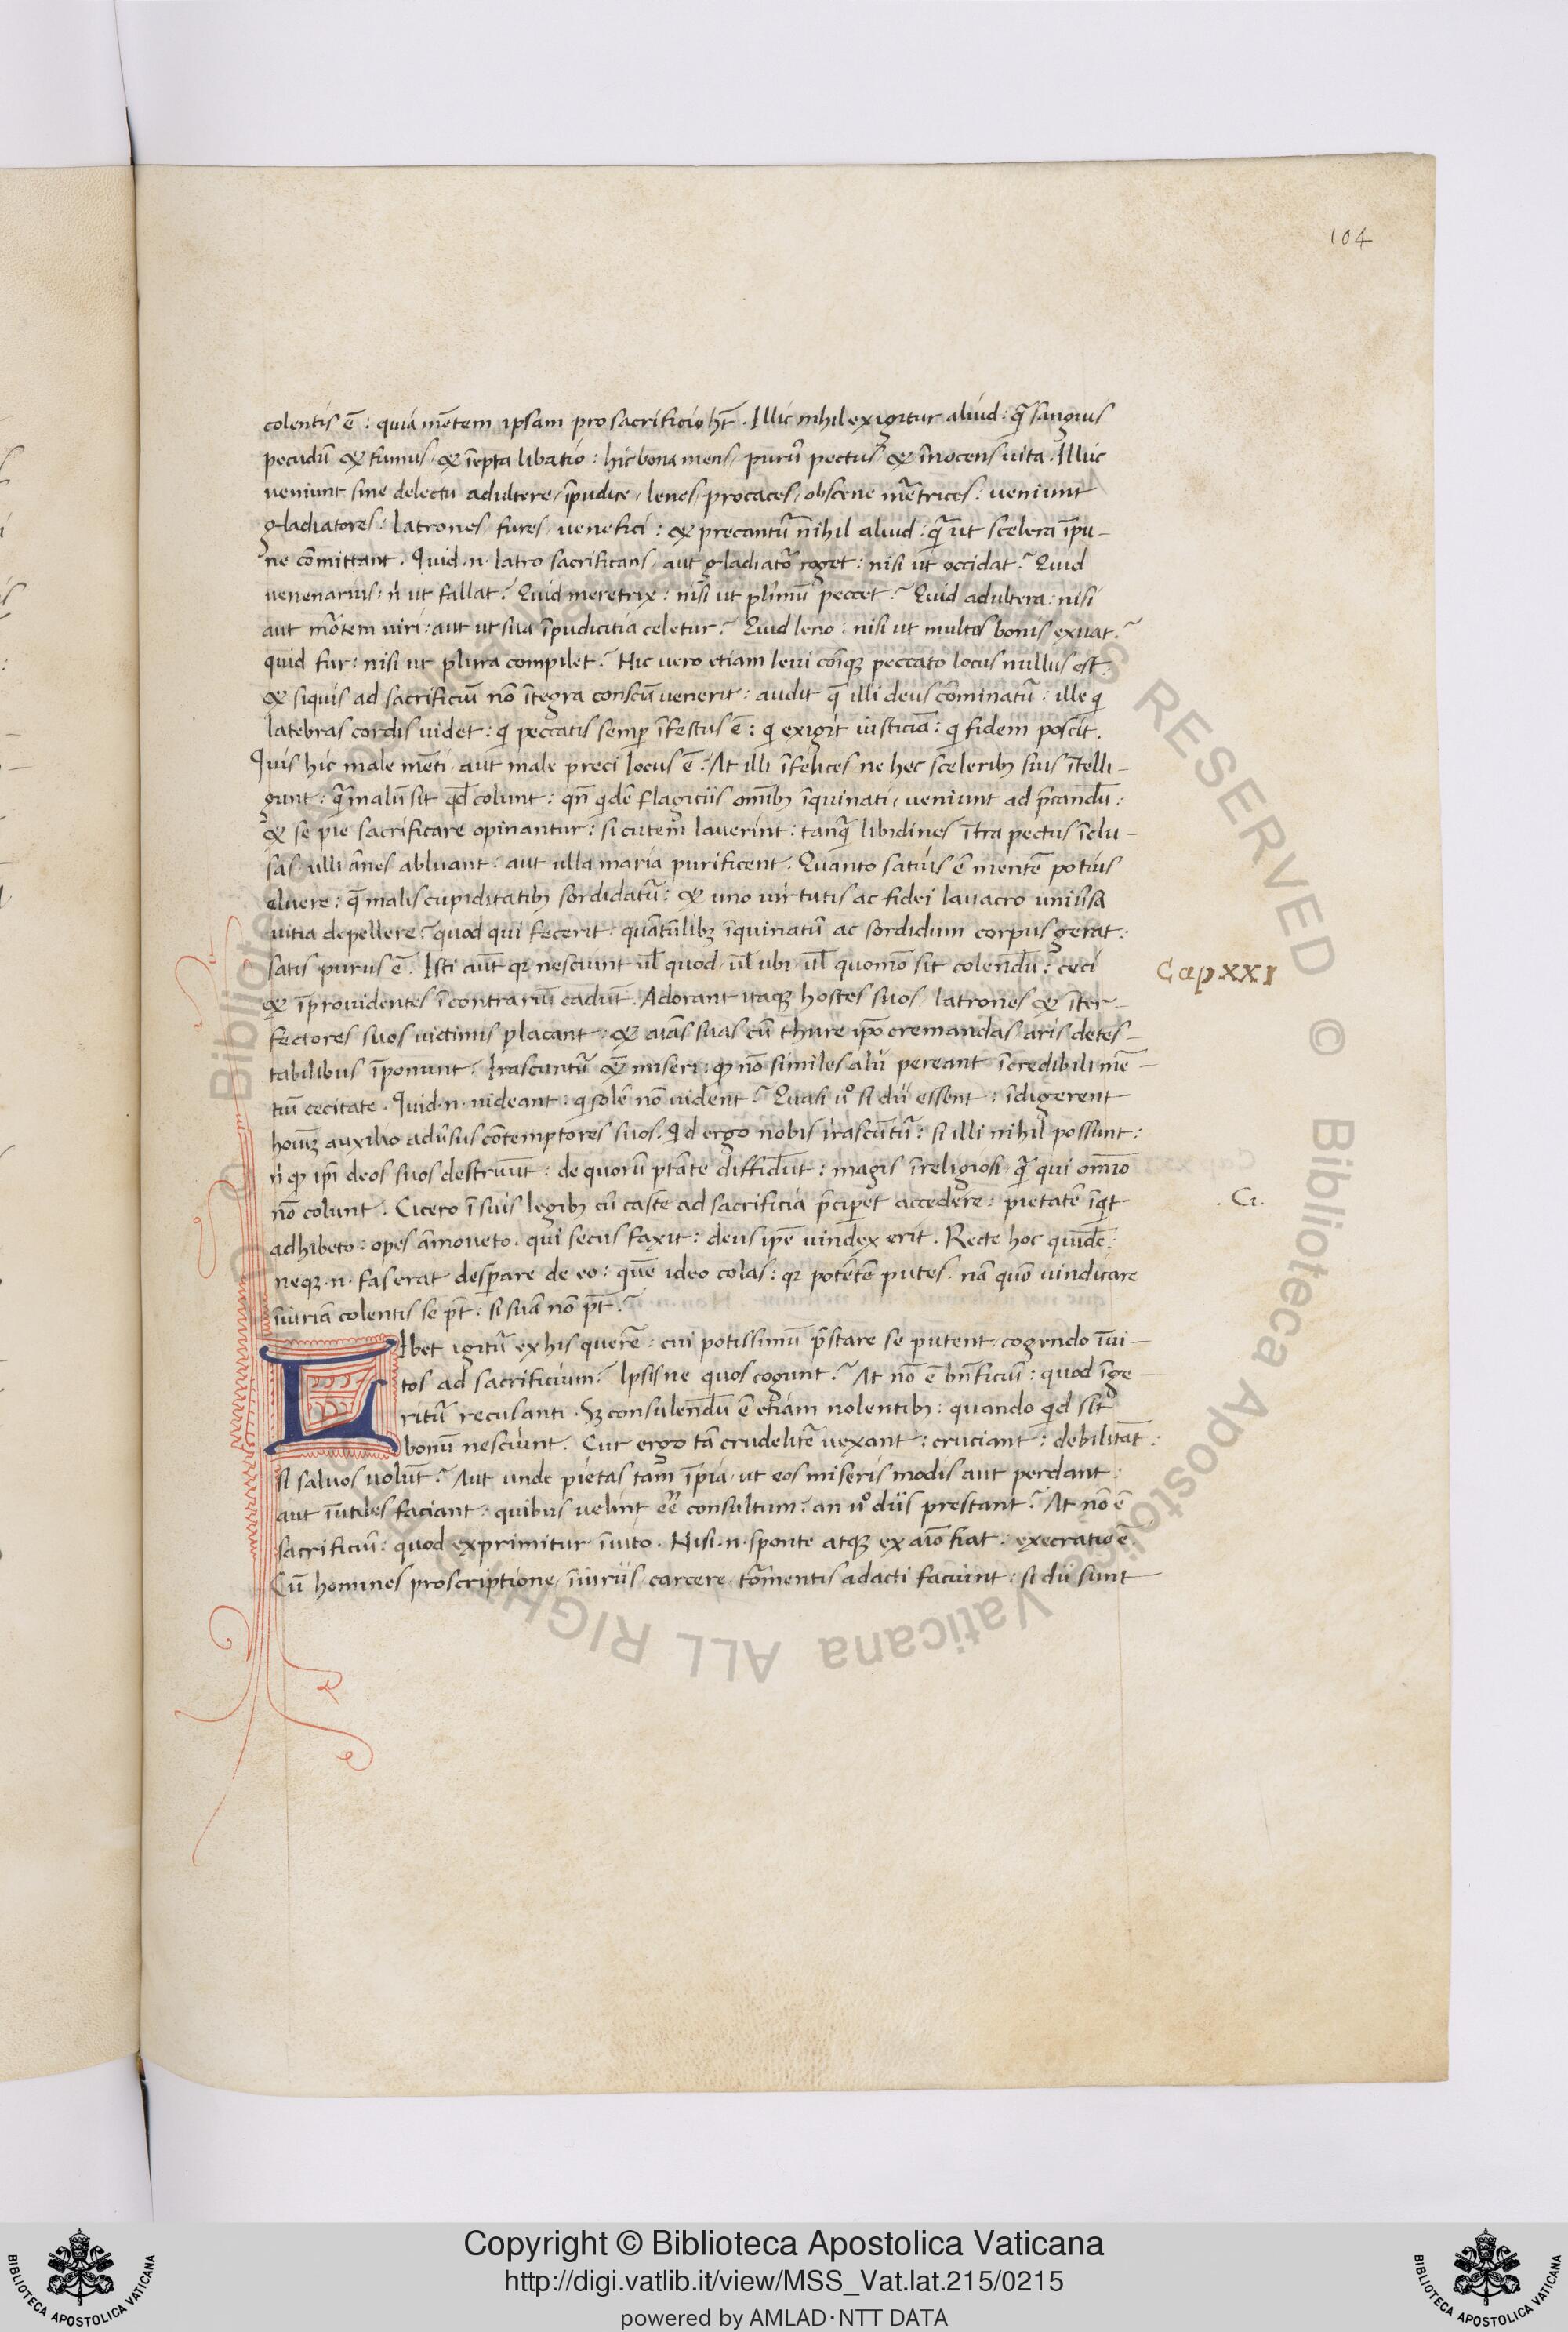 104
colentis ē : quia mētem ipsam pro sacrificio hꝫ̄ . Illic nihil exigitur aliud : q̄ sangius
pecudū & fumus & īepta libatio : hic bona mens / purū pectus & īnocens uita . Illuc
ueniunt sine delectu adultere / īpudice / lenes / procaces / obscene mētrices : ueniunt
gladiatores : latrones / fures / uenefici : & precantū nihil aliud : q̄ ut scelera īpu-
ne cōmittant . Quid .n. latro sacrificans / aut gladiator̄ roget : nisi ut occidat ? Quid
uenenarius : n̄ ut fallat ? Quid meretrix : nisi ut plīmū peccet ? Quid adultera : nisi
aut mōtem uiri : aut ut sua īpudicitia celetur ? Quid leno : nisi ut multos bonis exuat ?
quid fur : nisi ut plura compilet ? Hic uero etiam leui cōīqꝫ peccato locus nullus est .
& siquis ad sacrificiū nō ītegra consciā uenerit : audit q̄ illi deus cōminatū : ille qͥ
latebras cordis uidet : qͥ peccatis semp̄ īfestus ē : qͥ exigit iusticiā : qͥ fidem poscit .
Quis hic male mēti / aut male preci locus ē ? At illi īfelices ne hec sceleribꝫ suis ītelli-
gunt : q̄ malū sit qd̄ colunt : qn̄ qͥdē flagiciis omībꝫ īquinati / ueniunt ad p̄candū :
& se pie sacrificare opinantur : si cutem lauerint : tanq̄ libidines ītra pectus īclu-
sas ulli āmnes abluant : aut ulla maria purificent . Quanto satius ē mentē potius
eluere : q̄ malis cupiditatibꝫ sordidatū : & uno uirtutis ac fidei lauacro uniūsa
uitia depellere ? quod qui fecerit : quātūlibꝫ īquinatū ac sordidum corpus gerat :
satis purus ē . Isti aūt qꝛ nesciunt ul̄ quod / ul̄ ubi / ul̄ quomō sit colendū : ceci
Cap XXI
& īprouidentes ī contrariū cadūt . Adorant itaqꝫ hostes suos / latrones & īter-
fectores suos uictimis placant : & aīas suas cū thure ip̄o cremandas aris detes-
tabilibus īponunt . Irascuntū & miseri : ꝙ nō similes alii pereant īcredibili mē-
tiū cecitate . Quid .n. uideant : qͥ solē nō uident ? Quasi u͛o si dii essent : īdigerent
hoīuꝫ auxilio adūsus cōtemptores suos . Qd ergo nobis irascūtū : si illi nihil possunt :
n̄ ꝙ ip̄i deos suos destruūt : de quorū ptāte diffidūt : magis īreligiosi q̄ qui omīo
nō colunt . Cicero ī suis legibꝫ cū caste ad sacrificia p̄cip̄et accedere : pietatē īqͥt
. Ci.
adhibeto : opes āmoueto . qui secus faxit : deus ip̄e uindex erit . Recte hoc quidē :
neqꝫ .n. fas erat desp̄are de eo : quē ideo colas : qꝛ potētē putes . nā quō uindicare
īiuriā colentis se p̄t : si suā nō p̄t ?
LIbet igitū ex his querē : cui potissimū p̄stare se putent : cogendo īui-
tos ad sacrificium ? Ipsis ne quos cogunt ? At nō ē bn̄ficiū : quod īge-
ritū recusanti . Sꝫ consulendū ē etiam nolentibꝫ : quando qͥd sit
bonū nesciunt . Cur ergo tā crudelitē uexant : cruciant : debilitāt :
si saluos uolūt ? Aut unde pietas tam īpia / ut eos miseris modis aut perdant :
aut īutiles faciant : quibus uelint eē consultum ? an u͛o diis prestant ? At nō ē
sacrificiū : quod exprimitur īuito . Nisi .n. sponte atqꝫ ex aīo fiat : execratio ē
Cū homines proscriptione / īiuriis / carcere / tōmentis adacti faciunt : si dii sunt
Copyright © Biblioteca Apostolica Vaticana
http://digi.vatlib.it/view/MSS_Vat.lat.215/0215
powered by AMLAD·NTT DATA
BIBLIOTECA APOSTOLICA VATICANA
BIBLIOTECA APOSTOLICA VATICANA
© Biblioteca Apostolica Vaticana ALL RIGHTS RESERVED